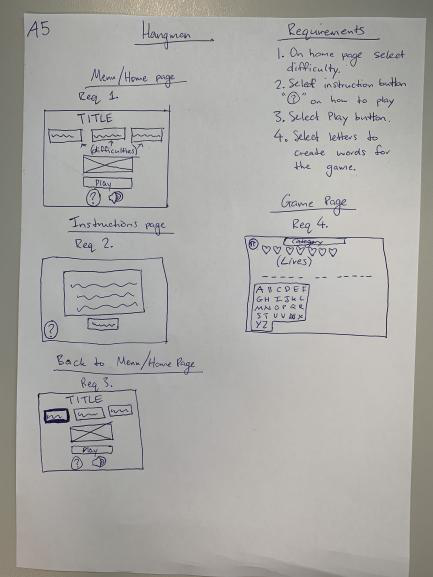 A5
Hangman
Menu/Home page
Req 1.
TITLE
(difficulties)
Play
?
Instructions page
Req 2.
?
Back to Menu/Home Page
Req 3.
TITLE
Play
?
Requirements
1. On home page select
difficulty.
2. Select instruction button
"?" on how to play
3. Select Play button.
4. Select letters to
create words for
the game.
Game Page
Req 4.
Category
(Lives)
A B C D E F
G H I J K L
M N O P Q R
S T U V W X
Y Z